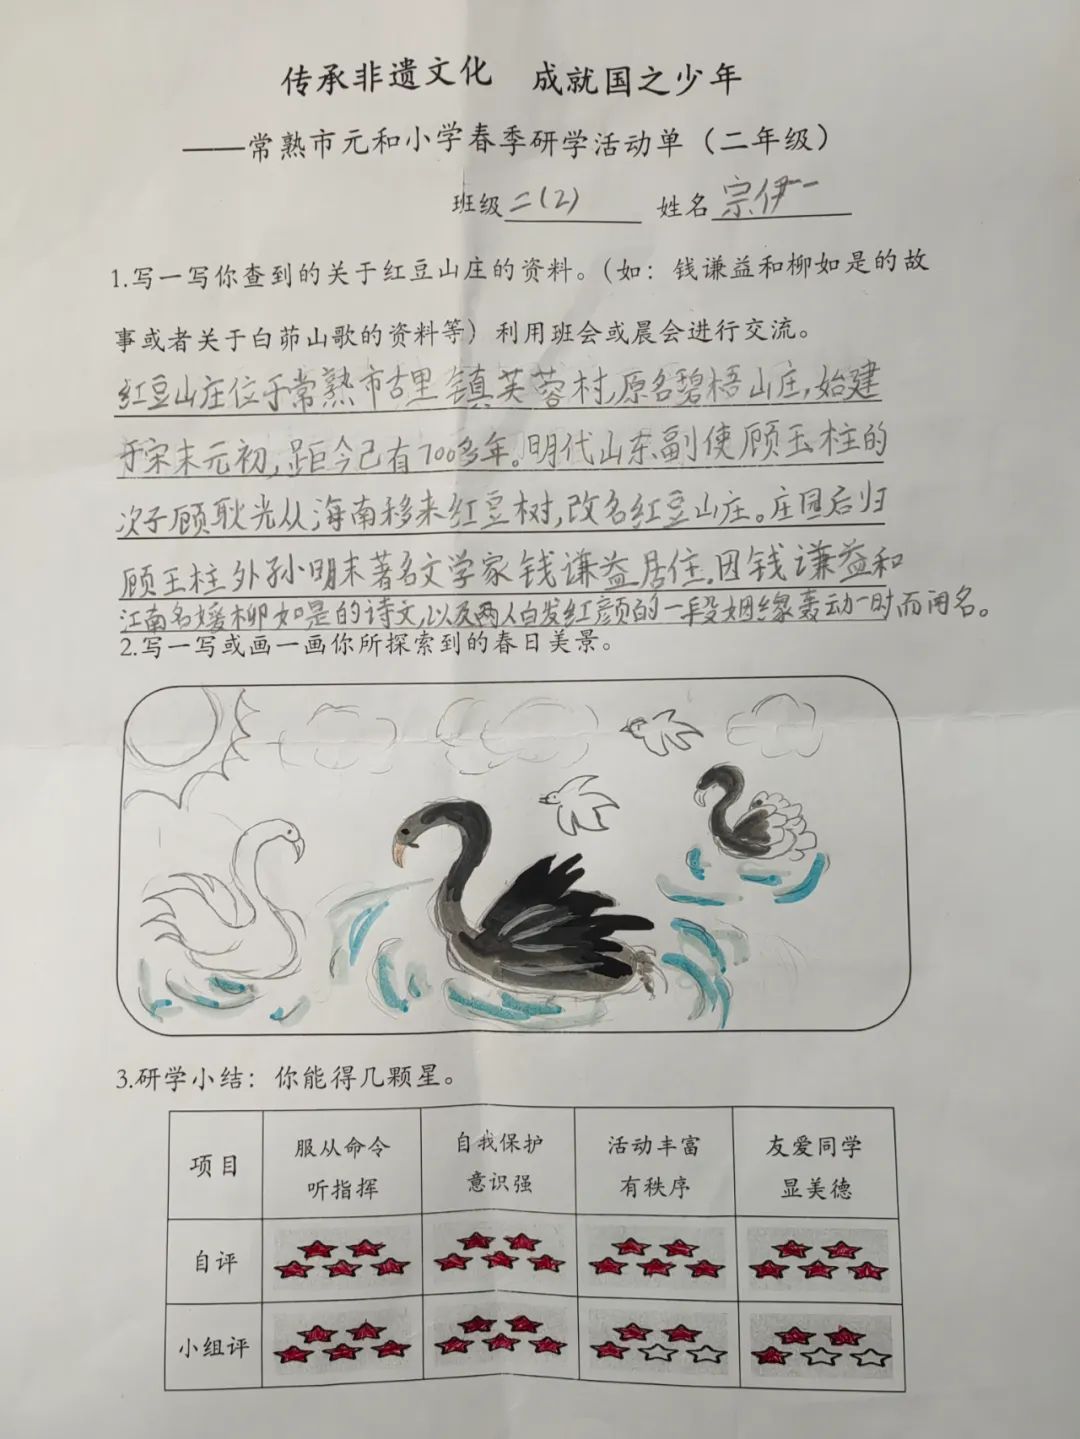 传承非遗文化 成就国之少年
——常熟市元和小学春季研学活动单（二年级）
班级 二(2) 姓名 宗伊一
1.写一写你查到的关于红豆山庄的资料。（如：钱谦益和柳如是的故
事或者关于白茆山歌的资料等）利用班会或晨会进行交流。
红豆山庄位于常熟市古里镇芙蓉村,原名碧梧山庄,始建
于宋末元初,距今已有700多年。明代山东副使顾玉柱的
次子顾耿光从海南移来红豆树,改名红豆山庄。庄园后归
顾玉柱外孙明末著名文学家钱谦益居住.因钱谦益和
江南名媛柳如是的诗文,以及两人白发红颜的一段姻缘轰动一时而闻名。
2.写一写或画一画你所探索到的春日美景。
3.研学小结：你能得几颗星。
项目 服从命令 自我保护 活动丰富 友爱同学
听指挥 意识强 有秩序 显美德
自评
小组评